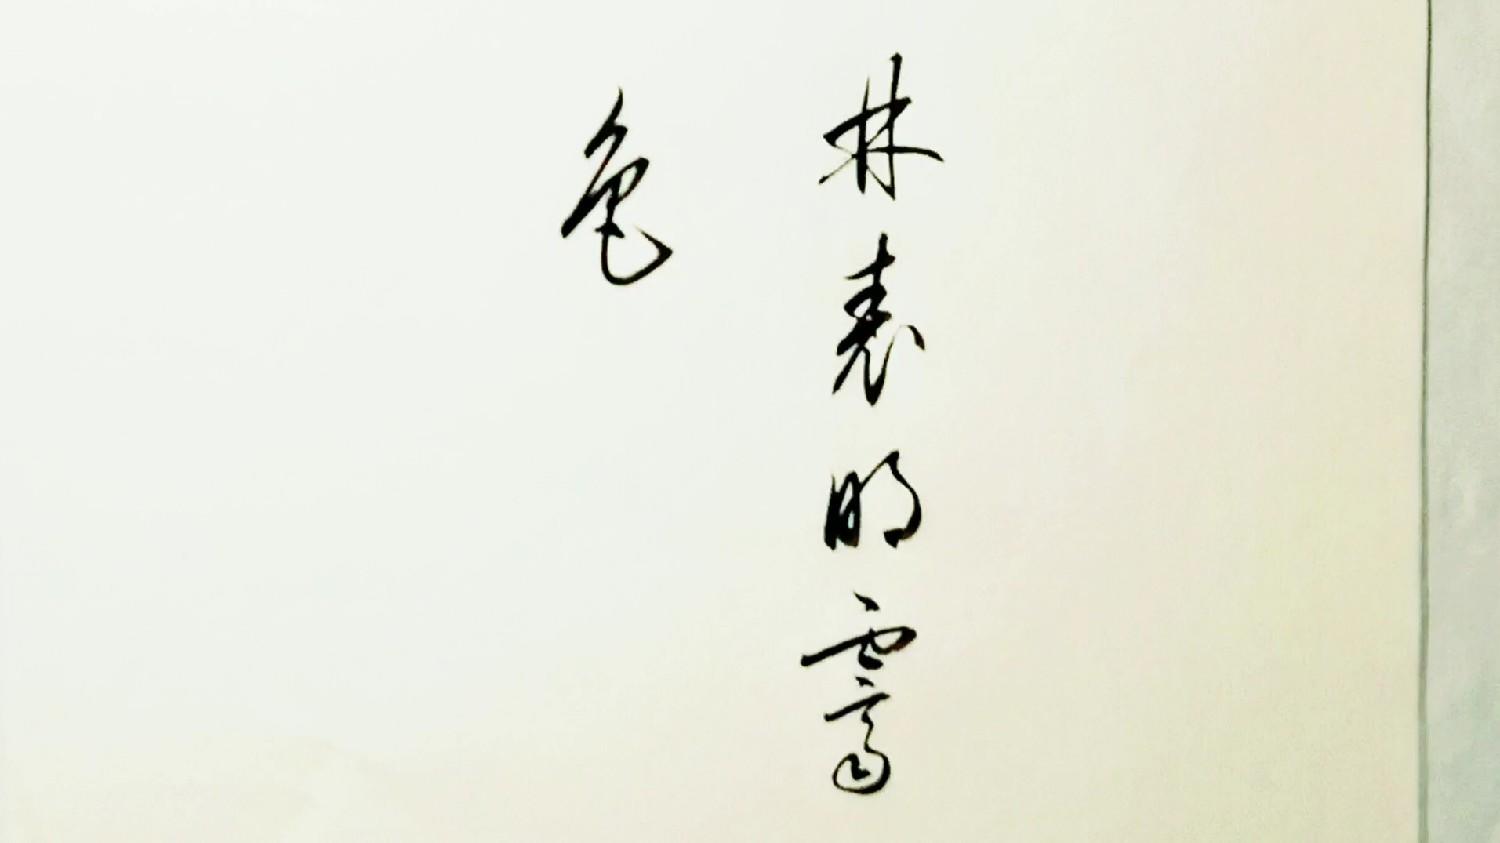 林表明霽
色